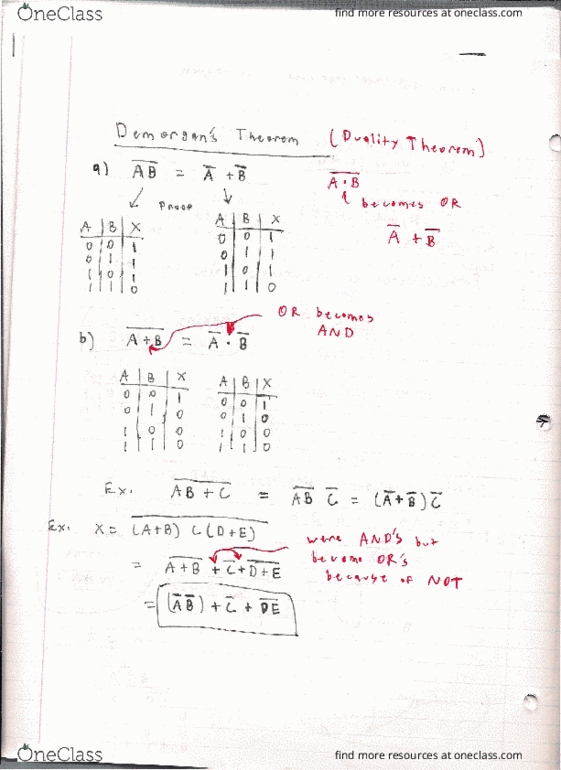 OneClass
find more resources at oneclass.com
Demorgan's Theorem (Duality Theorem)
a) A̅B̅ = A̅ + B̅
A̅·̅B̅
becomes OR
Proof
A̅ + B̅
A | B | X
0 | 0 | 1
0 | 1 | 1
1 | 0 | 1
1 | 1 | 0
A | B | X
0 | 0 | 1
0 | 1 | 1
1 | 0 | 1
1 | 1 | 0
OR becomes
AND
b) A̅+̅B̅ = A̅ · B̅
A | B | X
0 | 0 | 1
0 | 1 | 0
1 | 0 | 0
1 | 1 | 0
A | B | X
0 | 0 | 1
0 | 1 | 0
1 | 0 | 0
1 | 1 | 0
Ex. A̅B̅ ̅+̅ ̅C̅ = A̅B̅ C̅ = (A̅+B̅)C̅
Ex. X = (̅A̅+̅B̅)̅ ̅C̅ ̅(̅D̅+̅E̅)̅
were AND's but
become OR's
because of NOT
= A̅+̅B̅ + C̅ + D̅+̅E̅
= (A̅ B̅) + C̅ + D̅E̅
OneClass
find more resources at oneclass.com